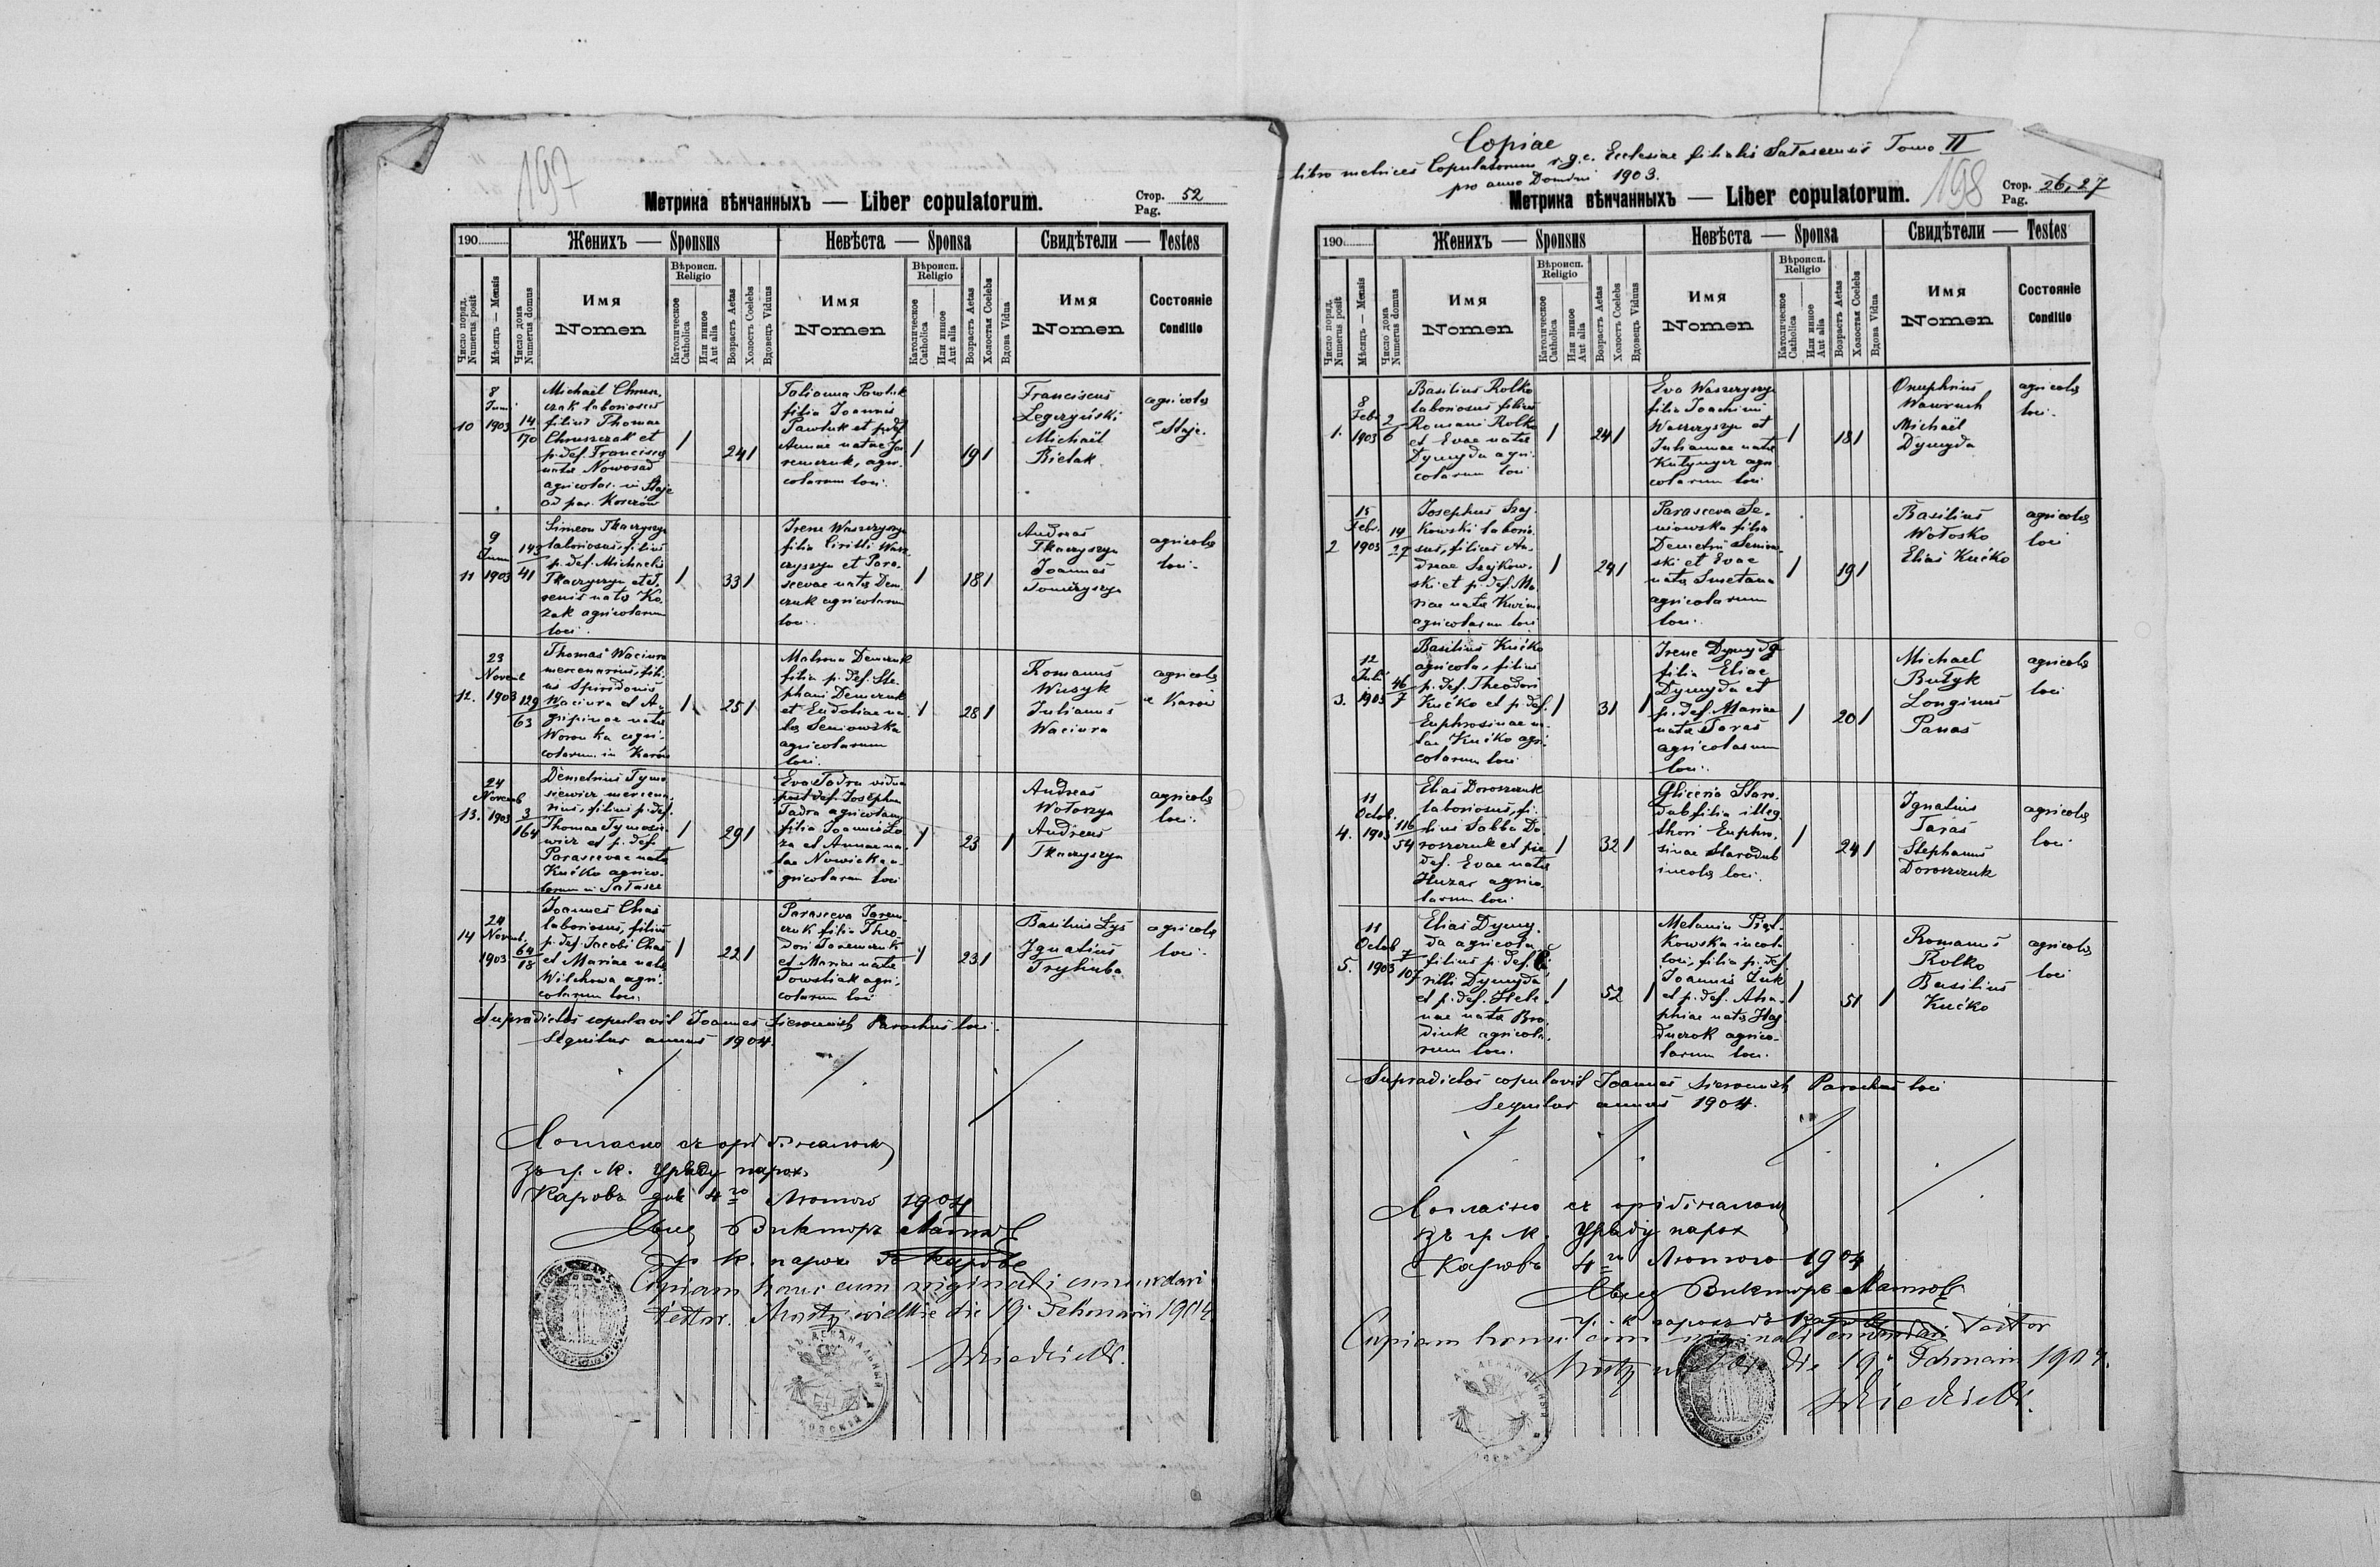 197
Метрика вѣнчанныхъ — Liber copulatorum.
Стор. 52
Pag.
190
Женихъ — Sponsus
Невѣста — Sponsa
Свидѣтели — Testes
Число поряд.
Numerus posit
Мѣсяць — Mensis
Число дома
Numerus domus
Имя
Nomen
Вѣроисп.
Religio
Католическое
Catholica
Или инное
Aut alia
Возрастъ Aetas
Холостъ Coelebs
Вдовецъ Viduus
Имя
Nomen
Вѣроисп.
Religio
Католическое
Catholica
Или инное
Aut alia
Возрастъ Aetas
Холостая Coelebs
Вдова Vidua
Имя
Nomen
Состояніе
Conditio
10
8
Juni
1903
14
170
Michaël Chrusz
czak laboriosus
filius Thomae
Chruszczak et
p. def. Francisca
nata Nowosad
agricolar. in Staje
ad par. Korczów
1
24 1
Tatianna Pawluk
filia Joannis
Pawluk et p. def.
Annae natae Ja
remczuk, agri-
colarum loci.
1
19 1
Franciscus
Legczyński
Michaël
Bielak
agricolae
Staje.
11
9
Juni
1903
143
41
Simeon Tkaczyszyn
laboriosus, filius
p. def. Michaelis
Tkaczyszyn et
nata Ko-
zak agricolarum
loci.
1
33 1
Irene Waszczyszyn
filia Cirilli Wasz-
czyszyn et Para-
scevae nata Dem
czuk agricolarum
loci.
1
18 1
Andreas
Tkaczyszyn
Joannes
Tomczyszyn
agricolae
loci.
12.
23
Novemb
1903
129
63
Thomas Waciura
mercenarius, fili-
us Spiridonis
Waciura et A-
gripinae nata
Woronka agri-
colarum in Karów
1
25 1
Matrona Demczuk
filia p. def. Ste-
phani Demczuk
et Eudokiae na
ta Seniowska
agricolarum
loci.
1
28 1
Romanus
Wusyk
Julianus
Waciura
agricolae
e Karów
13.
24
Novemb
1903
3
164
Demetrius Tymo
siewicz mercena-
rius, filius p. def.
Thomae Tymosie-
wicz et p. def.
Parascevae nata
Kućko agrico-
larum in Sałasze
1
29 1
Eva Fadra vidua
post def. Josephum
Fadra agricolam
filia Joannis Ło
za et Annae na-
tae Nowicka a-
gricolarum loci
1
23 1
Andreas
Wołoszyn
Andreas
Tkaczyszyn
agricolae
loci.
14
24
Novemb.
1903
64
18
Joannes Chaś
laboriosus, filius
p. def. Jacobi Chaś
et Mariae nata
Wilchowa agri-
colarum loci.
1
22 1
Parasceva Jarem
czuk filia Theo-
dori Jaremczuk
et Mariae nata
Towstiak agri-
colarum loci
1
23 1
Basilius Łyś
Ignatius
Tryhuba
agricolae
loci.
Supradictos copulavit Joannes Parochus loci.
Sequitur annus 1904.
Согласно съ оригіналомъ
зъ гр. к. Уряду парох.
Каровъ дня 4го Лютого 1904
Викторъ
гр. к. парохъ въ Каровѣ
Copiam hanc cum originali concordari
testor. Mosty wielkie die 19. Februarii 1904
Copiae
libro metrices Copulatorum r.g.c. Ecclesiae filialis Sałascensis Tomo II
pro anno Domini 1903.
198
Метрика вѣнчанныхъ — Liber copulatorum.
Стор. 26, 27
Pag.
190
Женихъ — Sponsus
Невѣста — Sponsa
Свидѣтели — Testes
Число поряд.
Numerus posit
Мѣсяць — Mensis
Число дома
Numerus domus
Имя
Nomen
Вѣроисп.
Religio
Католическое
Catholica
Или инное
Aut alia
Возрастъ Aetas
Холостъ Coelebs
Вдовецъ Viduus
Имя
Nomen
Вѣроисп.
Religio
Католическое
Catholica
Или инное
Aut alia
Возрастъ Aetas
Холостая Coelebs
Вдова Vidua
Имя
Nomen
Состояніе
Conditio
1.
8
Febr
1903
2
6
Basilius Rolko
laboriosus filius
Romani Rolko
et Evae nata
Dymyda agri-
colarum loci
1
24 1
Eva Waszczyszyn
filia Joachimi
Waszczyszyn et
Juliannae nata
Kułynycz agri
colarum loci
1
18 1
Onuphrius
Wawruch
Michaël
Dymyda
agricolae
loci.
2
15
Febr.
1903
14
27
Josephus Szaj-
kowski laborio-
sus, filius An-
dreae Szajkow-
ski et p. def. Ma-
riae nata
agricolarum loci
1
24 1
Parasceva Se-
niowska filia
Demetrii Seniow-
ski et Evae
nata Smetana
agricolarum
loci.
1
19 1
Basilius
Wołosko
Elias Kućko
agricolae
loci
3.
12
Juli
1903
46
7
Basilius Kućko
agricola, filius
p. def. Theodori
Kućko et p. def.
Euphrosinae na
tae Kućko agri-
colarum loci
1
31 1
Irene Dymyda
filia Eliae
Dymyda et
p. def. Mariae
nata Taras
agricolarum
loci.
1
20 1
Michael
Bułyk
Longinus
Panas
agricolae
loci
4.
11
Octob.
1903
116
54
Elias Doroszczuk
laboriosus, fi-
lius Sabba Do-
roszczuk et pie
def. Evae nata
Huzar agrico-
larum loci
1
32 1
Gliceria Staro-
dub filia illeg.
thori Euphro-
sinae Starodub
incolae loci.
1
24 1
Ignatius
Taras
Stephanus
Doroszczuk
agricolae
loci
5.
11
Octob
1903
7
107
Elias Dymy-
da agricola
filius p. def. Ci
rilli Dymyda
et p. def. Hele-
nae nata Bro-
diuk agricola-
rum loci.
1
52 1
Melania Piąt-
kowska incola
loci, filia p. def.
Joannis Żuk
et p. def. Aha-
phiae nata Haj
duczok agrico-
larum loci.
1
51 1
Romanus
Rolko
Basilius
Kućko
agricolae
loci
Supradictos copulavit Joannes Parochus loci
Sequitur annus 1904.
Согласно съ оригіналомъ
зъ гр. к. Уряду парох
Каровъ 4го Лютого 1904
Викторъ
гр. к. парохъ въ Каровѣ
Copiam hanc cum originali concordari testor
Mosty wielkie die 19. Februarii 1904.